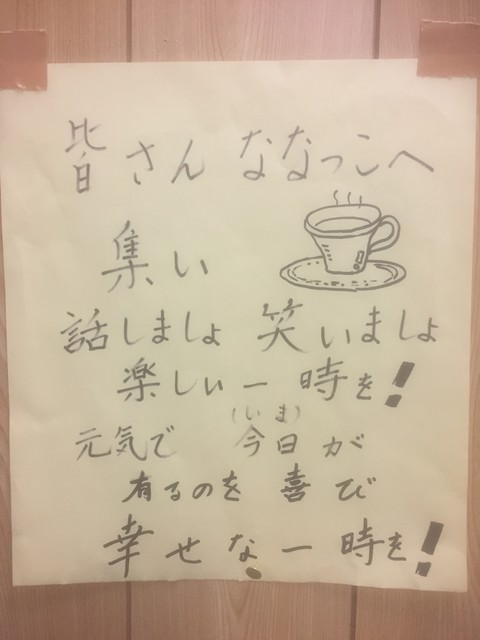 皆さん ななっこへ
集い
話しましょ 笑いましょ
楽しい一時を!
(いま)
元気で 今日が
有るのを 喜び
幸せな一時を!